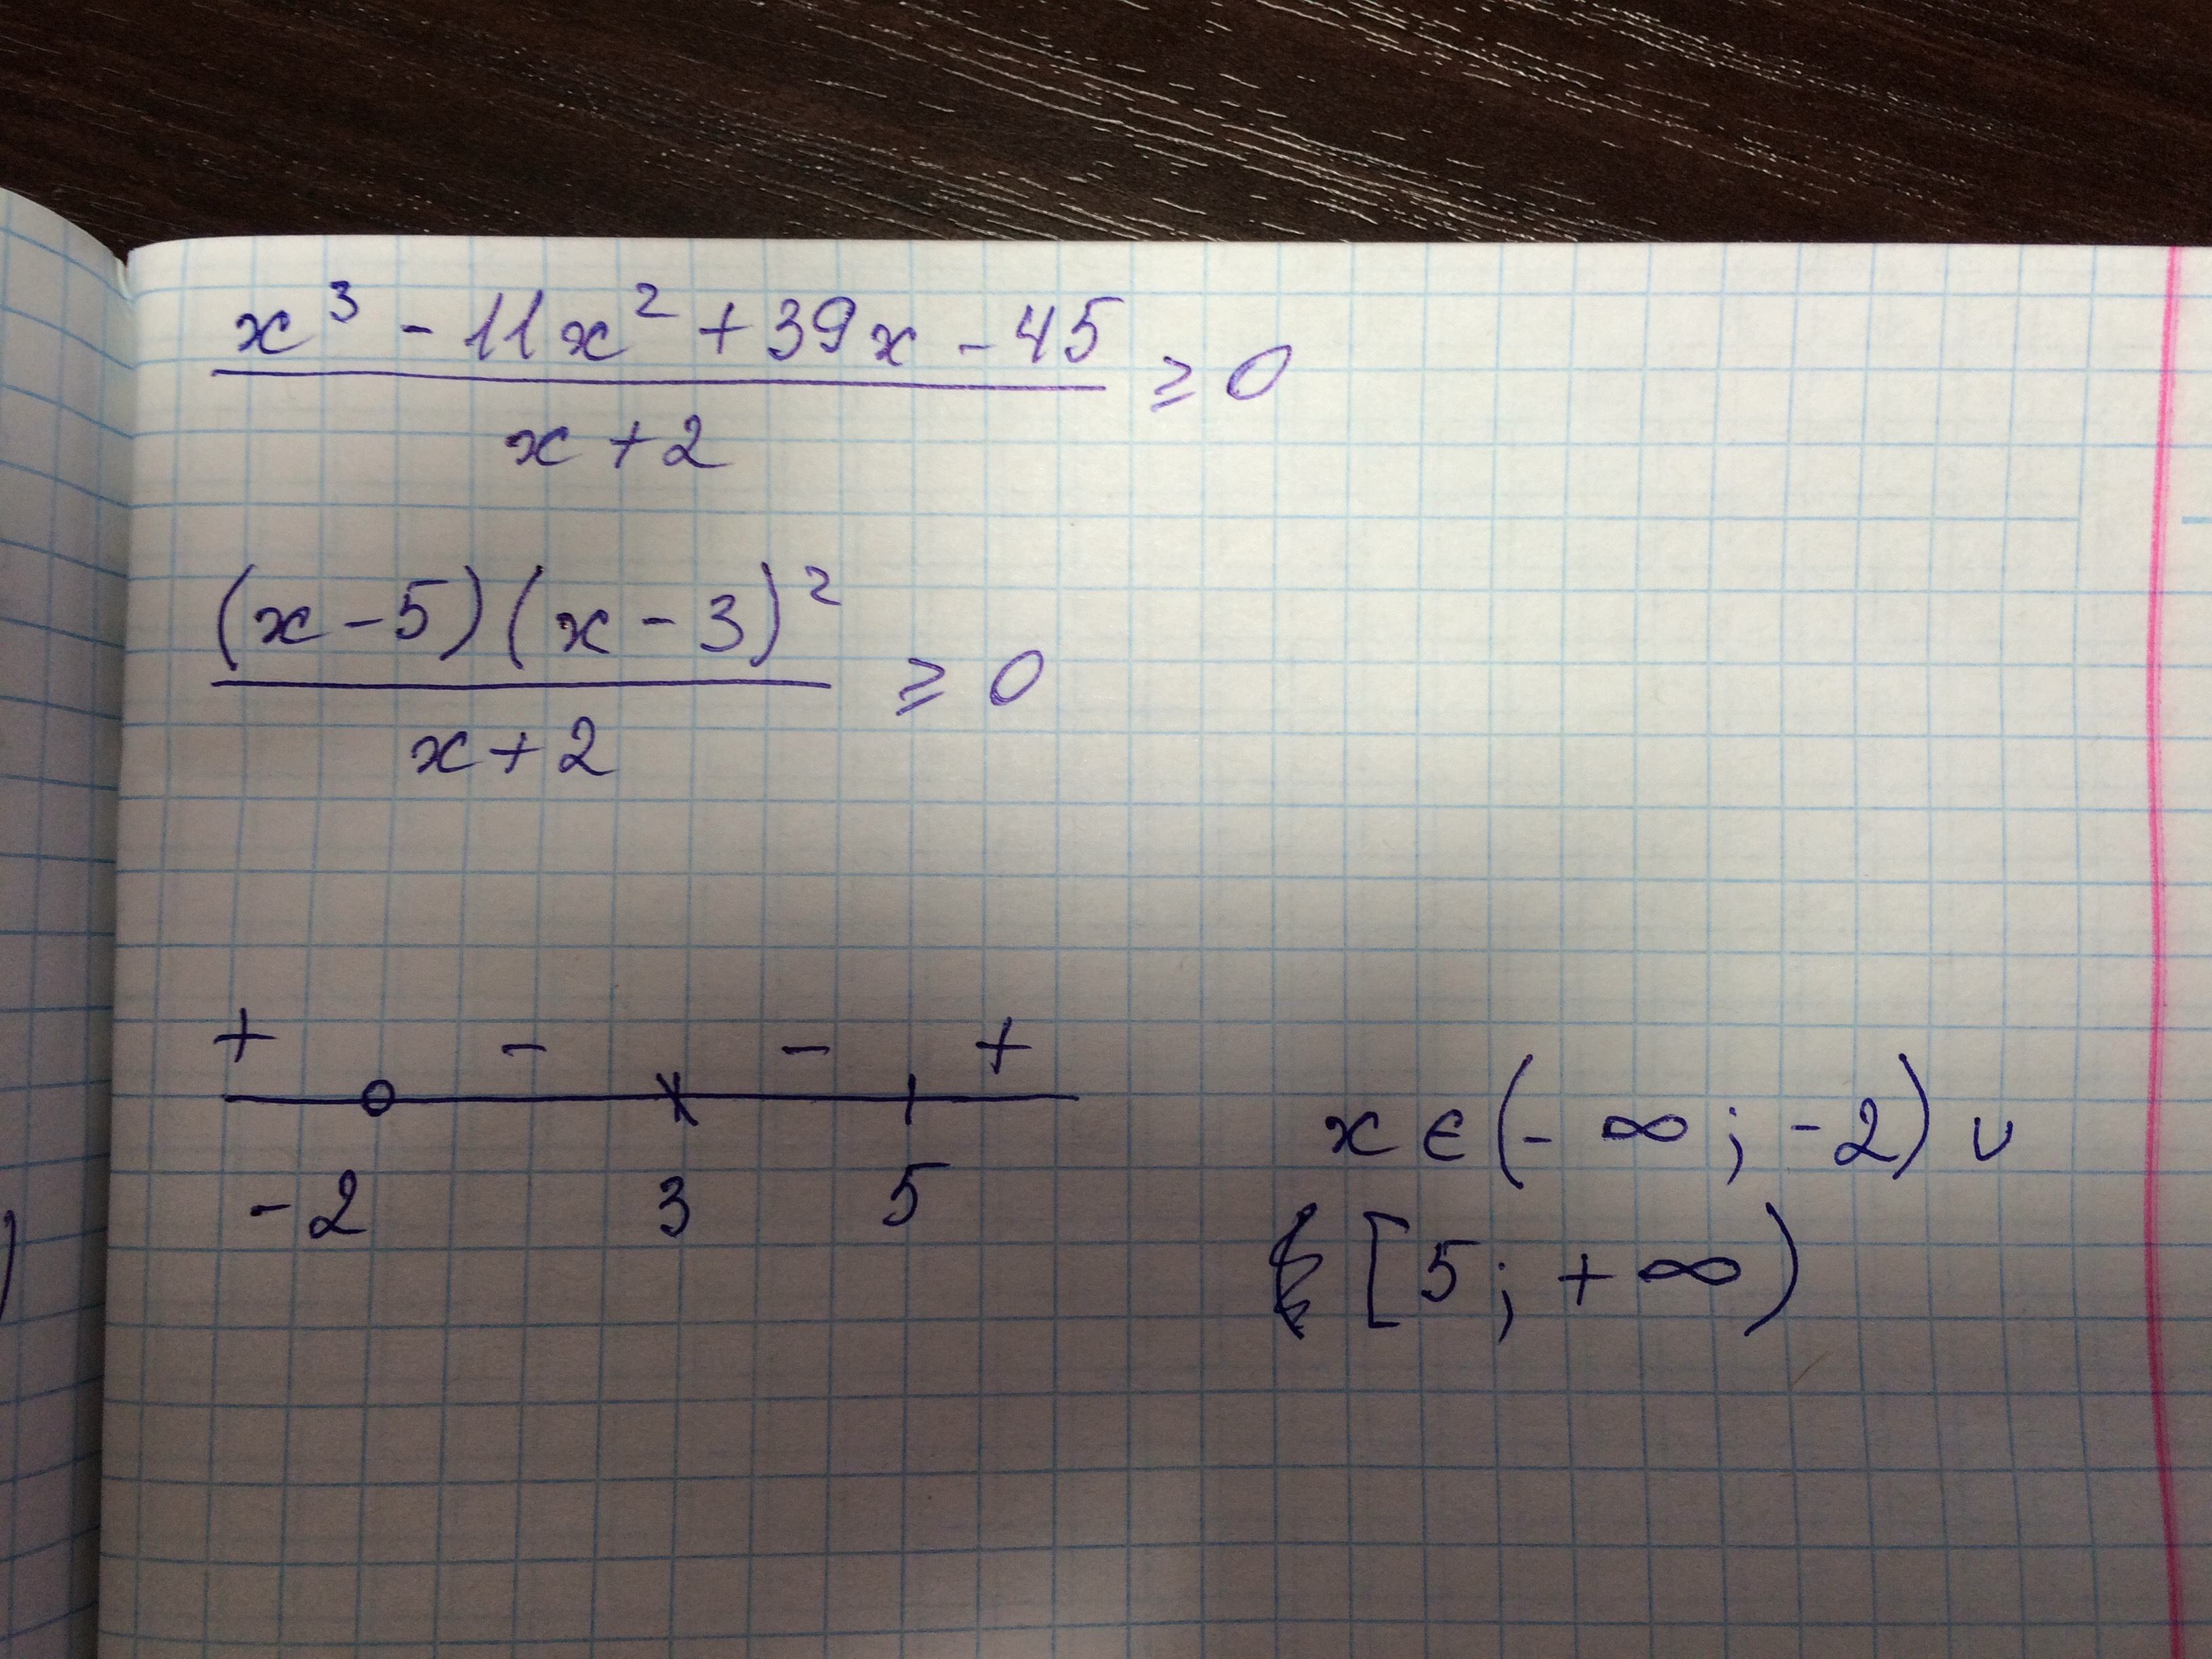 x³ - 11x² + 39x - 45
≥ 0
x + 2
(x - 5)(x - 3)²
≥ 0
x + 2
+ - - +
-2 3 5
x ∈ (-∞; -2) ∪
[5; +∞)